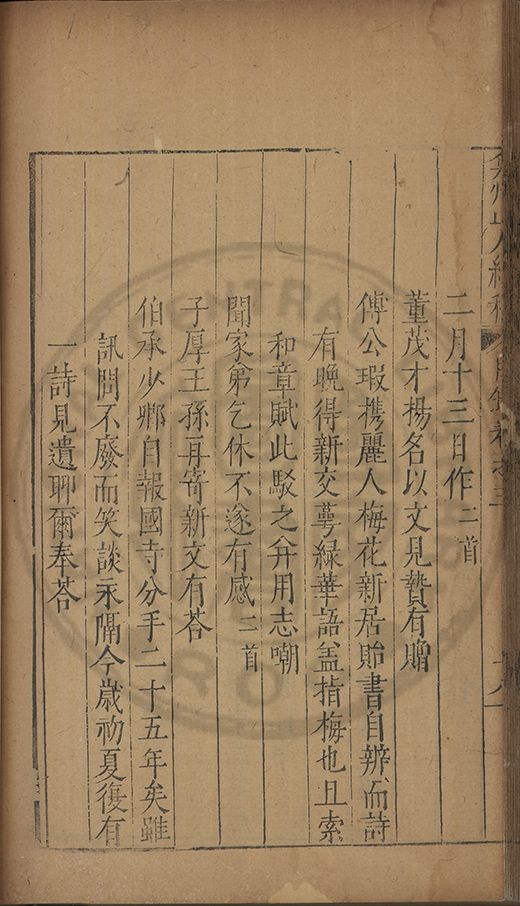 弇州山人續稿 目錄卷之三
二月十三日作二首
董茂才揚名以文見贄有贈
傅公瑕携麗人梅花新居貽書自辨而詩
有晚得新交萼綠華語盖指梅也且索
和章賦此駁之并用志嘲
聞家弟乞休不遂有感二首
子厚王孫再寄新文有荅
伯承少卿自報國寺分手二十五年矣雖
訊問不廢而笑談永隔今歳初夏復有
一詩見遺聊爾奉荅